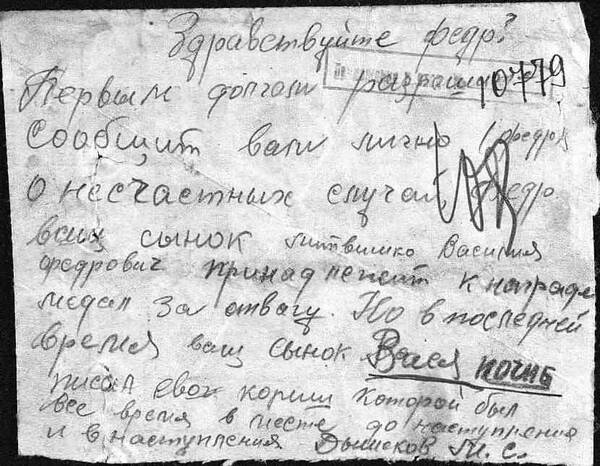 Здравствуйте федр?
Первым долгом разраши 10779
сообщит вам лично федр
о несчастных случай федр
ваш сынок литвишко Василия
федрович принадлежит к награде
медал за отвагу. Но в последней
время ваш сынок Вася погиб
писал евог кориш которой был
все время в месте до наступления
и в наступления Дышеков М. С.